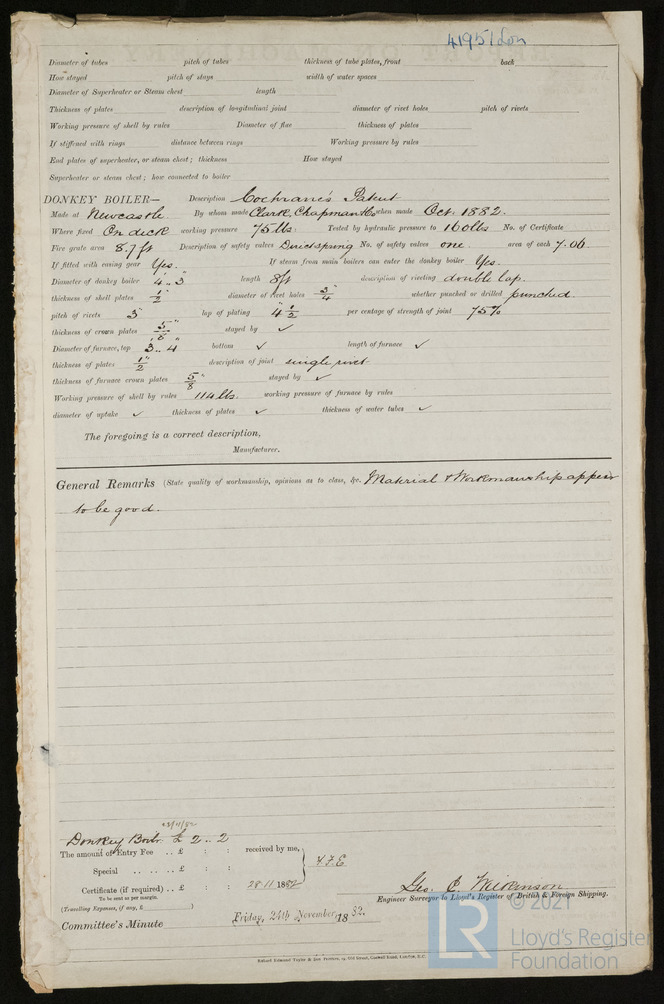 41951 Lon
Diameter of tubes pitch of tubes thickness of tube plates, front back
How stayed pitch of stays width of water spaces
Diameter of Superheater or Steam chest length
Thickness of plates description of longitudinal joint diameter of rivet holes pitch of rivets
Working pressure of shell by rules Diameter of flue thickness of plates
If stiffened with rings distance between rings Working pressure by rules
End plates of superheater, or steam chest; thickness How stayed
Superheater or steam chest; how connected to boiler
DONKEY BOILER— Description Cochrane's Patent
Made at Newcastle By whom made Clark, Chapman & Co when made Oct. 1882.
Where fixed On deck working pressure 75 lbs. Tested by hydraulic pressure to 160 lbs No. of Certificate
Fire grate area 8.7 ft Description of safety valves Direct spring No. of safety valves one. area of each 7.06
If fitted with easing gear Yes. If steam from main boilers can enter the donkey boiler Yes.
Diameter of donkey boiler 4..3 length 8 ft description of riveting double lap.
thickness of shell plates 1/2" diameter of rivet holes 3/4" whether punched or drilled punched.
pitch of rivets 3" lap of plating 4 1/2" per centage of strength of joint 75%
thickness of crown plates 5/8" stayed by ✓
Diameter of furnace, top 3..4" bottom ✓ length of furnace ✓
thickness of plates 1/2" description of joint single rivet
thickness of furnace crown plates 5/8" stayed by ✓
Working pressure of shell by rules 114 lbs. working pressure of furnace by rules
diameter of uptake ✓ thickness of plates ✓ thickness of water tubes ✓
The foregoing is a correct description,
Manufacturer.
General Remarks (State quality of workmanship, opinions as to class, &c. Material & Workmanship appear
to be good.
Donkey Boiler £ 2..2
The amount of Entry Fee .. £ : : received by me,
Special .. .. .. £ : :
Certificate (if required) .. £ : : 28.11 1882
To be sent as per margin.
(Travelling Expenses, if any, £ )
Geo. C. Wilkinson
Engineer Surveyor to Lloyd's Register of British & Foreign Shipping.
Committee's Minute Friday, 24th November 1882.
© 2021
LR Lloyd's Register
Foundation